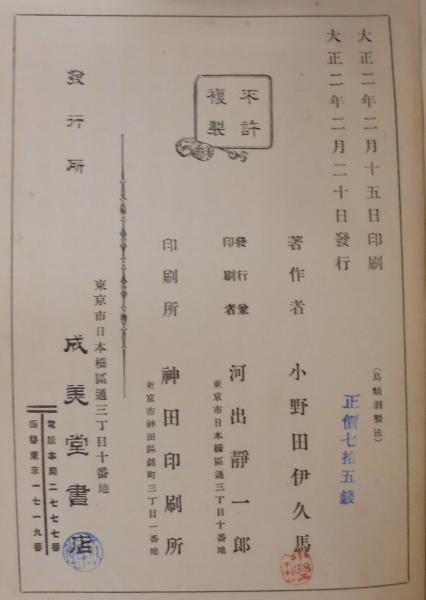 大正二年二月十五日印刷
大正二年二月二十日發行
（鳥類剥製法）
正價七拾五錢
不許
複製
著作者 小野田伊久馬
發行兼
印刷者 河出靜一郎
東京市日本橋區通三丁目十番地
印刷所 神田印刷所
東京市神田區錦町三丁目一番地
發行所
東京市日本橋區通三丁目十番地
成美堂書店
電話本局二七七七番
振替東京一七一九番